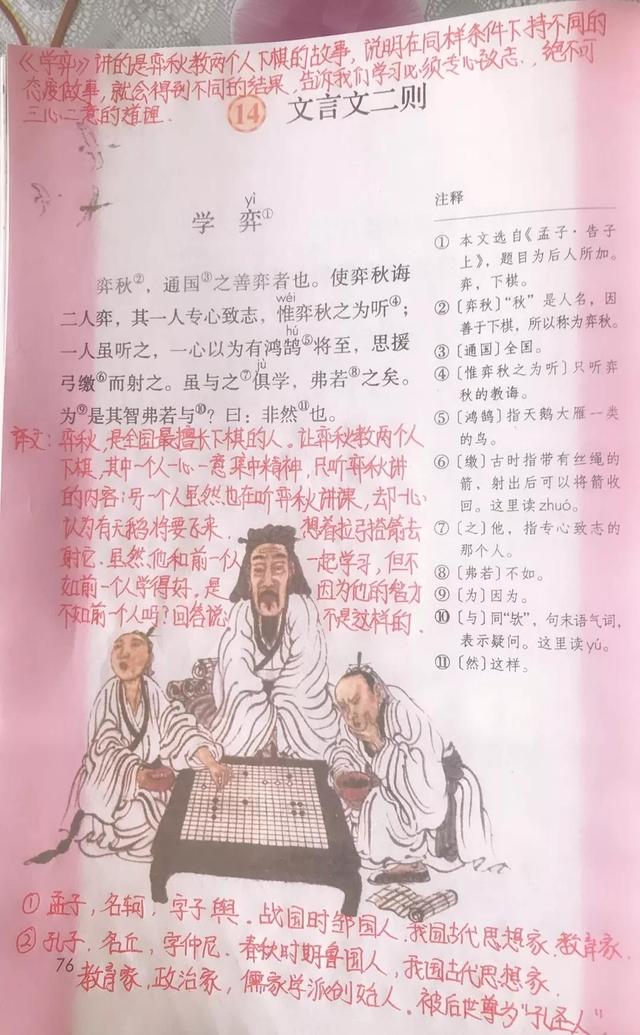 《学弈》讲的是弈秋教两个人下棋的故事，说明在同样条件下持不同的
态度做事，就会得到不同的结果，告诉我们学习必须专心致志，绝不可
三心二意的道理．
14 文言文二则
yì
学 弈①
弈秋②，通国③之善弈者也。使弈秋诲
wéi
二人弈，其一人专心致志，惟弈秋之为听④；
hú
一人虽听之，一心以为有鸿鹄⑤将至，思援
jù
弓缴⑥而射之。虽与之⑦俱学，弗若⑧之矣。
为⑨是其智弗若与⑩？曰：非然⑪也。
注释
① 本文选自《孟子·告子
上》，题目为后人所加。
弈，下棋。
②〔弈秋〕“秋”是人名，因
善于下棋，所以称为弈秋。
③〔通国〕全国。
④〔惟弈秋之为听〕只听弈
秋的教诲。
⑤〔鸿鹄〕指天鹅大雁一类
的鸟。
⑥〔缴〕古时指带有丝绳的
箭，射出后可以将箭收
回。这里读zhuó。
⑦〔之〕他，指专心致志的
那个人。
⑧〔弗若〕不如。
⑨〔为〕因为。
⑩〔与〕同“欤”，句末语气词，
表示疑问。这里读yú。
⑪〔然〕这样。
译文：弈秋，是全国最擅长下棋的人。让弈秋教两个人
下棋，其中一个人一心一意，集中精神，只听弈秋讲
的内容；另一个人虽然也在听弈秋讲课，却一心
认为有天鹅将要飞来． 想着拉弓搭箭去
射它．虽然他和前一个人 一起学习，但不
如前一个人学得好，是 因为他的智力
不如前一个人吗？回答说 不是这样的．
① 孟子，名轲，字子舆．战国时邹国人．我国古代思想家．教育家．
② 孔子．名丘，字仲尼．春秋时期鲁国人，我国古代思想家．
教育家，政治家，儒家学派创始人。被后世尊为“孔圣人”．
76